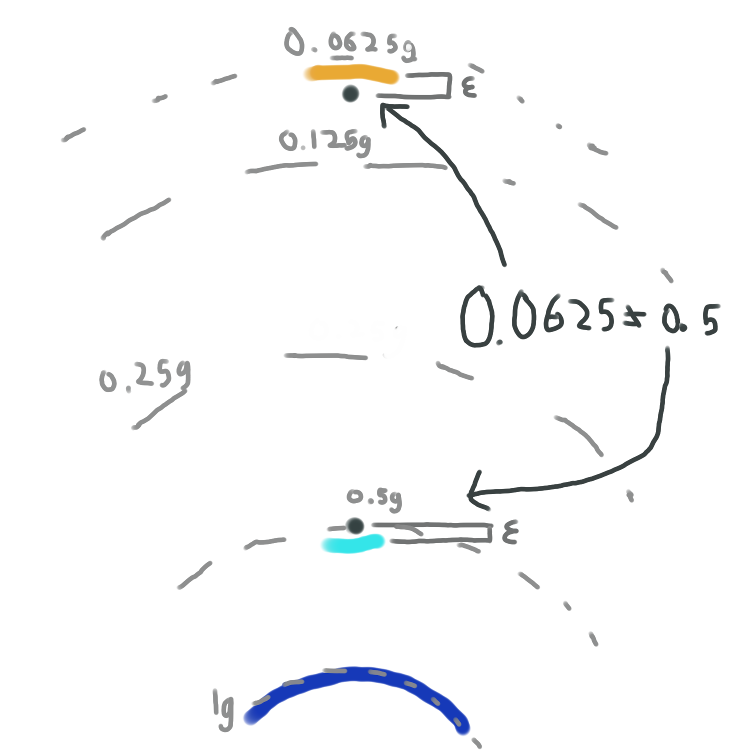 0.0625g
ε
0.125g
0.0625 ≠ 0.5
0.25g
0.5g
ε
1g